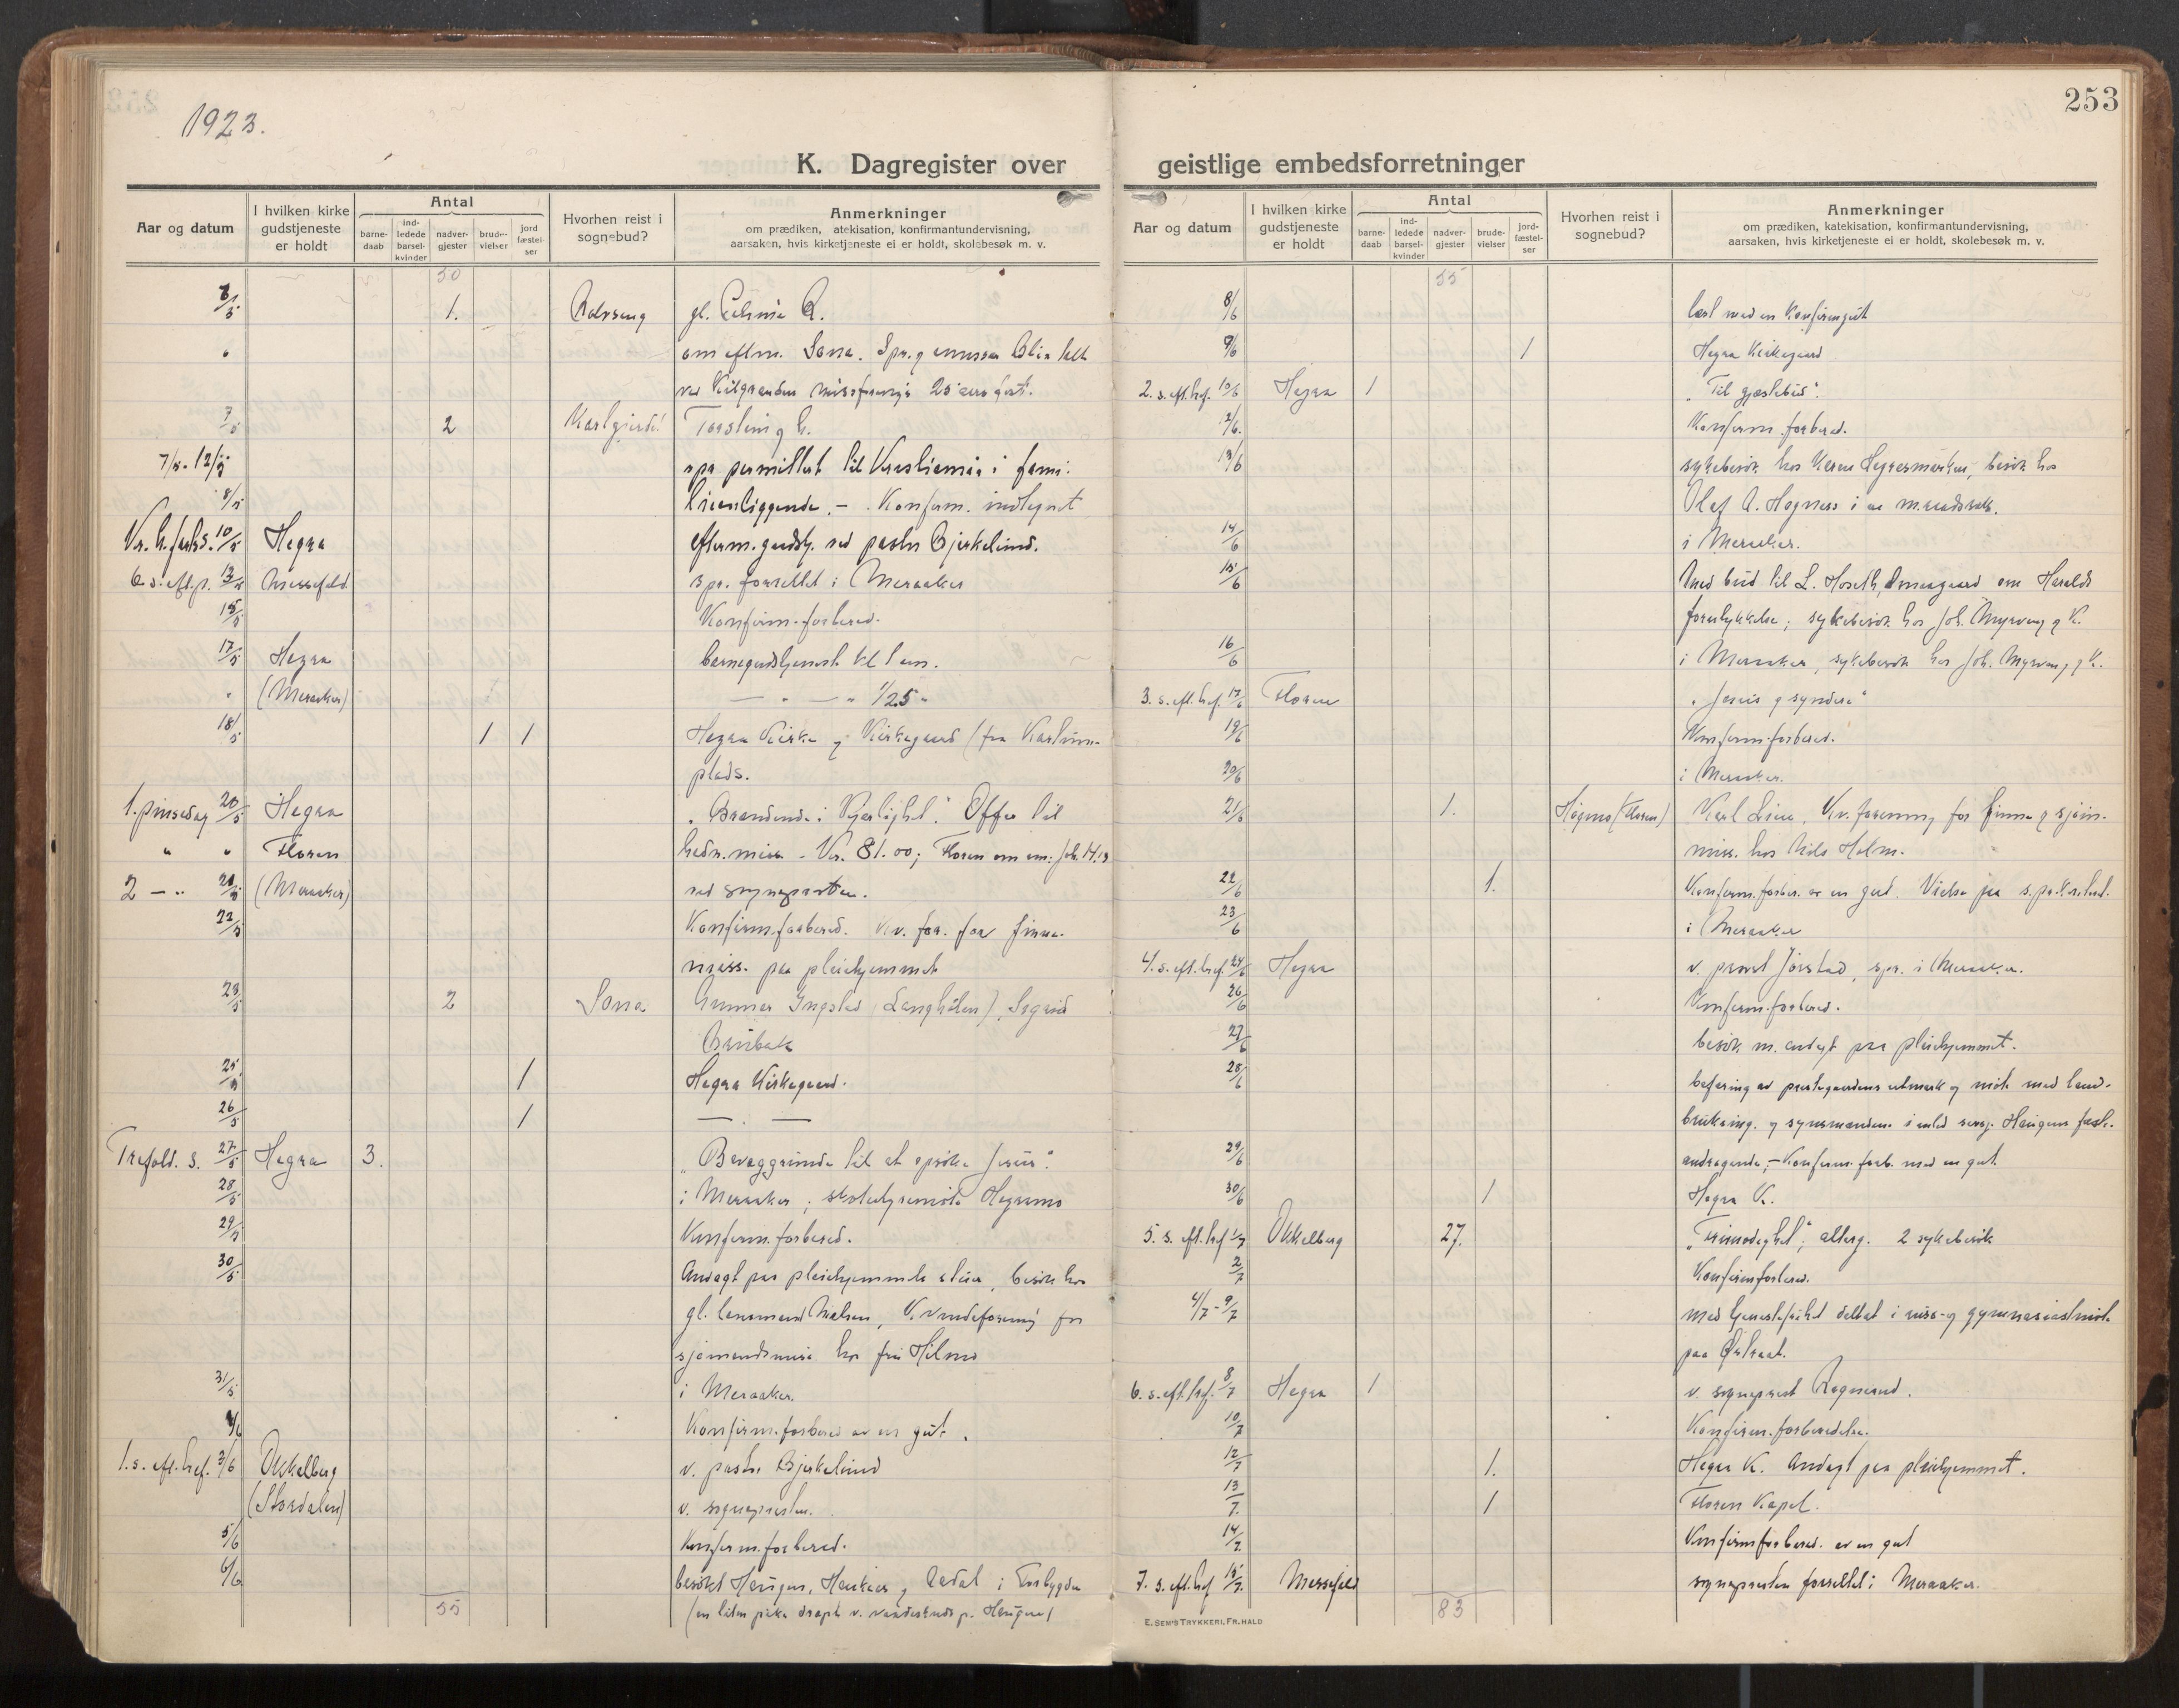 1923.
253
K. Dagregister over
Aar og datum
I hvilken kirke gudstjeneste er holdt
Antal
barne-daab
ind-ledede barsel-kvinder
nadver-gjester
brude-vielser
jord fæstel-ser
Hvorhen reist i sognebud?
Anmerkninger
om prædiken, atekisation, konfirmantundervisning,
aarsaken, hvis kirketjeneste ei er holdt, skolebesøk m. v.
50
6/5 1. gl.
om eftm. Sona. Spr. g
25 aars fest.
7/5 2
7/5 - 12/5 spr permittert til i fami-
8/5 lieanliggende. - Konfirm. indtegnet
Kr. h. farts. 10/5 Hegra efterm. gudstj. ved pastor Bjerkelund.
6. s. eft. p. 13/5 Messefeld. spr. forrettet i Meraaker
15/5 Konfirm. forbered.
17/5 Hegra barnegudstjeneste kl 1 em.
" (Meraaker) — " — "
18/5 1 1 Hegra Kirke og Kirkegaard (fra
plads.
1. pinsedag 20/5 Hegra "Brændende i Kjærlighet". Offer til
" " Floren hedn. miss. - Kr. 81.00; Floren om em. Joh. 14.
2 — " 21/5 (Meraaker) ved sognepresten.
22/5 Konfirm. forbered. Kv. for. for finne-
miss. paa pleiehjemmet
23/5 2 Sona Gunnar Ingstad (Langhølen), Sigrid
Brubak
25/5 1 Hegra Kirkegaard.
26/5 1 — " —
Trefold. s. 27/5 Hegra 3. "Bevæggrunde til at opsøke Jesus".
28/5 i Meraaker; skolestyremøte Hegramo
29/5 Konfirm. forbered.
30/5 Andagt paa pleiehjemmets besøk hos
gl. lensmand Kvindeforening for
sjømandsmiss. hos fru Hilmo
31/5 i Meraaker.
Konfirm. forbered av en gut.
1. s. eft. tref. 3/6 Okkelberg v. pastor Bjerkelund
(Stordalen) v. sognepresten.
5/6 Konfirm. forbered.
6/6 besøkt Haugen, og i Forbygden
(en liten pike dræpt v. p. Haugen)
55
geistlige embedsforretninger
Aar og datum
I hvilken kirke gudstjeneste er holdt
Antal
barne-daab
ind-ledede barsel-kvinder
nadver-gjester
brude-vielser
jord-fæstel-ser
Hvorhen reist i sognebud?
Anmerkninger
om prædiken, katekisation, konfirmantundervisning,
aarsaken, hvis kirketjeneste ei er holdt, skolebesøk m. v.
55
8/6 læst med en Konfirmgut
9/6 1 Hegra Kirkegaard
2. s. eft. tref. 10/6 Hegra 1 "Til gjæstebud".
12/6. Konfirm. forbered.
13/6 sykebesøk hos besøk hos
Olaf A. Hognes i
14/6 i Meraaker.
15/6 Med bud til L. Hoseth, om Haralds
forulykkelse; sykebesøk hos Joh. Myrvang g K.
16/6 i Meraaker, sykebesøk hos Joh. Myrvang g K.
3. s. eft. tref. 17/6 Floren "Jesus g syndere"
19/6 Konfirm. forbered.
20/6 i Meraaker.
21/6 1. Hogmo (Floren) Karl Lien, Kv. forening for finne g sjøm.-
miss. hos Nils Holm.
22/6 1. Konfirm. forber. av en gut. Vielse paa
23/6 i Meraaker
4. s. eft. tref. 24/6 Hegra v. provst Jørstad, spr. i Meraaker.
26/6 Konfirm. forbered.
27/6 besøk m. andagt paa pleiehjemmet.
28/6 befaring av prestegaardens utmark og møte med land-
bruksing. g synsmændene i anled Haugens fest.-
29/6 andragende; - Konfirm. forb. med en gut
30/6 1 Hegra K.
5. s. eft. tref 1/7 Okkelberg 27. "Frimodighet"; alterg. 2 sykebesøk
2/7 Konfirmforbered.
4/7 - 9/7 med tjenestefrihet deltat i russ- og gymnasiastmøte
paa Østraat.
6. s. eft. tref. 8/7 Hegra 1 v. sogneprest Rognerud.
10/7 Konfirm. forberedelse.
12/7 1. Hegra K. Andagt paa pleiehjemmet.
13/7. 1 Floren Kapel.
14/7. Konfirmforbered. av en gut
7. s. eft. tref 15/7. Messefeld sognepresten forrettet i Meraaker.
83
E. SEM'S TRYKKERI, FR.HALD